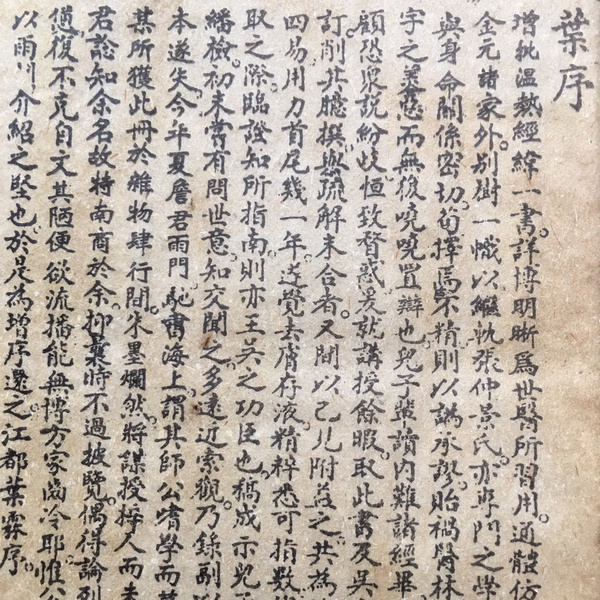 葉序
增批溫熱經緯一書。詳博明晰為世醫所習用。通體仿
金元諸家外。別樹一幟以繼軌張仲景氏。亦專門之學
與身命關係密切。苟擇焉不精則以譌承謬。貽禍腎林
宇之美惡而無復嘵嘵置辯也。兒子輩讀內難諸經畢
顧恐衆說紛歧恒致瞀惑爰就講授餘暇。取此書及吳
訂。削其臆撰與疏解未合者。又間以己見附益之。共為
四易用力首尾幾一年迄覺去膚存液精粹悉可指數
取之際。臨證知所指南。則亦王吳之功臣也。稿成示兒
繙檢。初未嘗有問世意。知交聞之。多遠近索觀。乃錄副
本遂失。今年夏詹君雨門。馳書海上。謂其師公嗜學而
某所獲此冊於雜物肆行間。朱墨爛然。將謀授梓人而未
君諗知余名故特南商於余。抑曩時不過披覽。偶得論列
衟復不克自文其陋便欲流播能無博方家齒冷耶惟公
以雨門介紹之堅也。於是為增序還之。江都葉霖序。